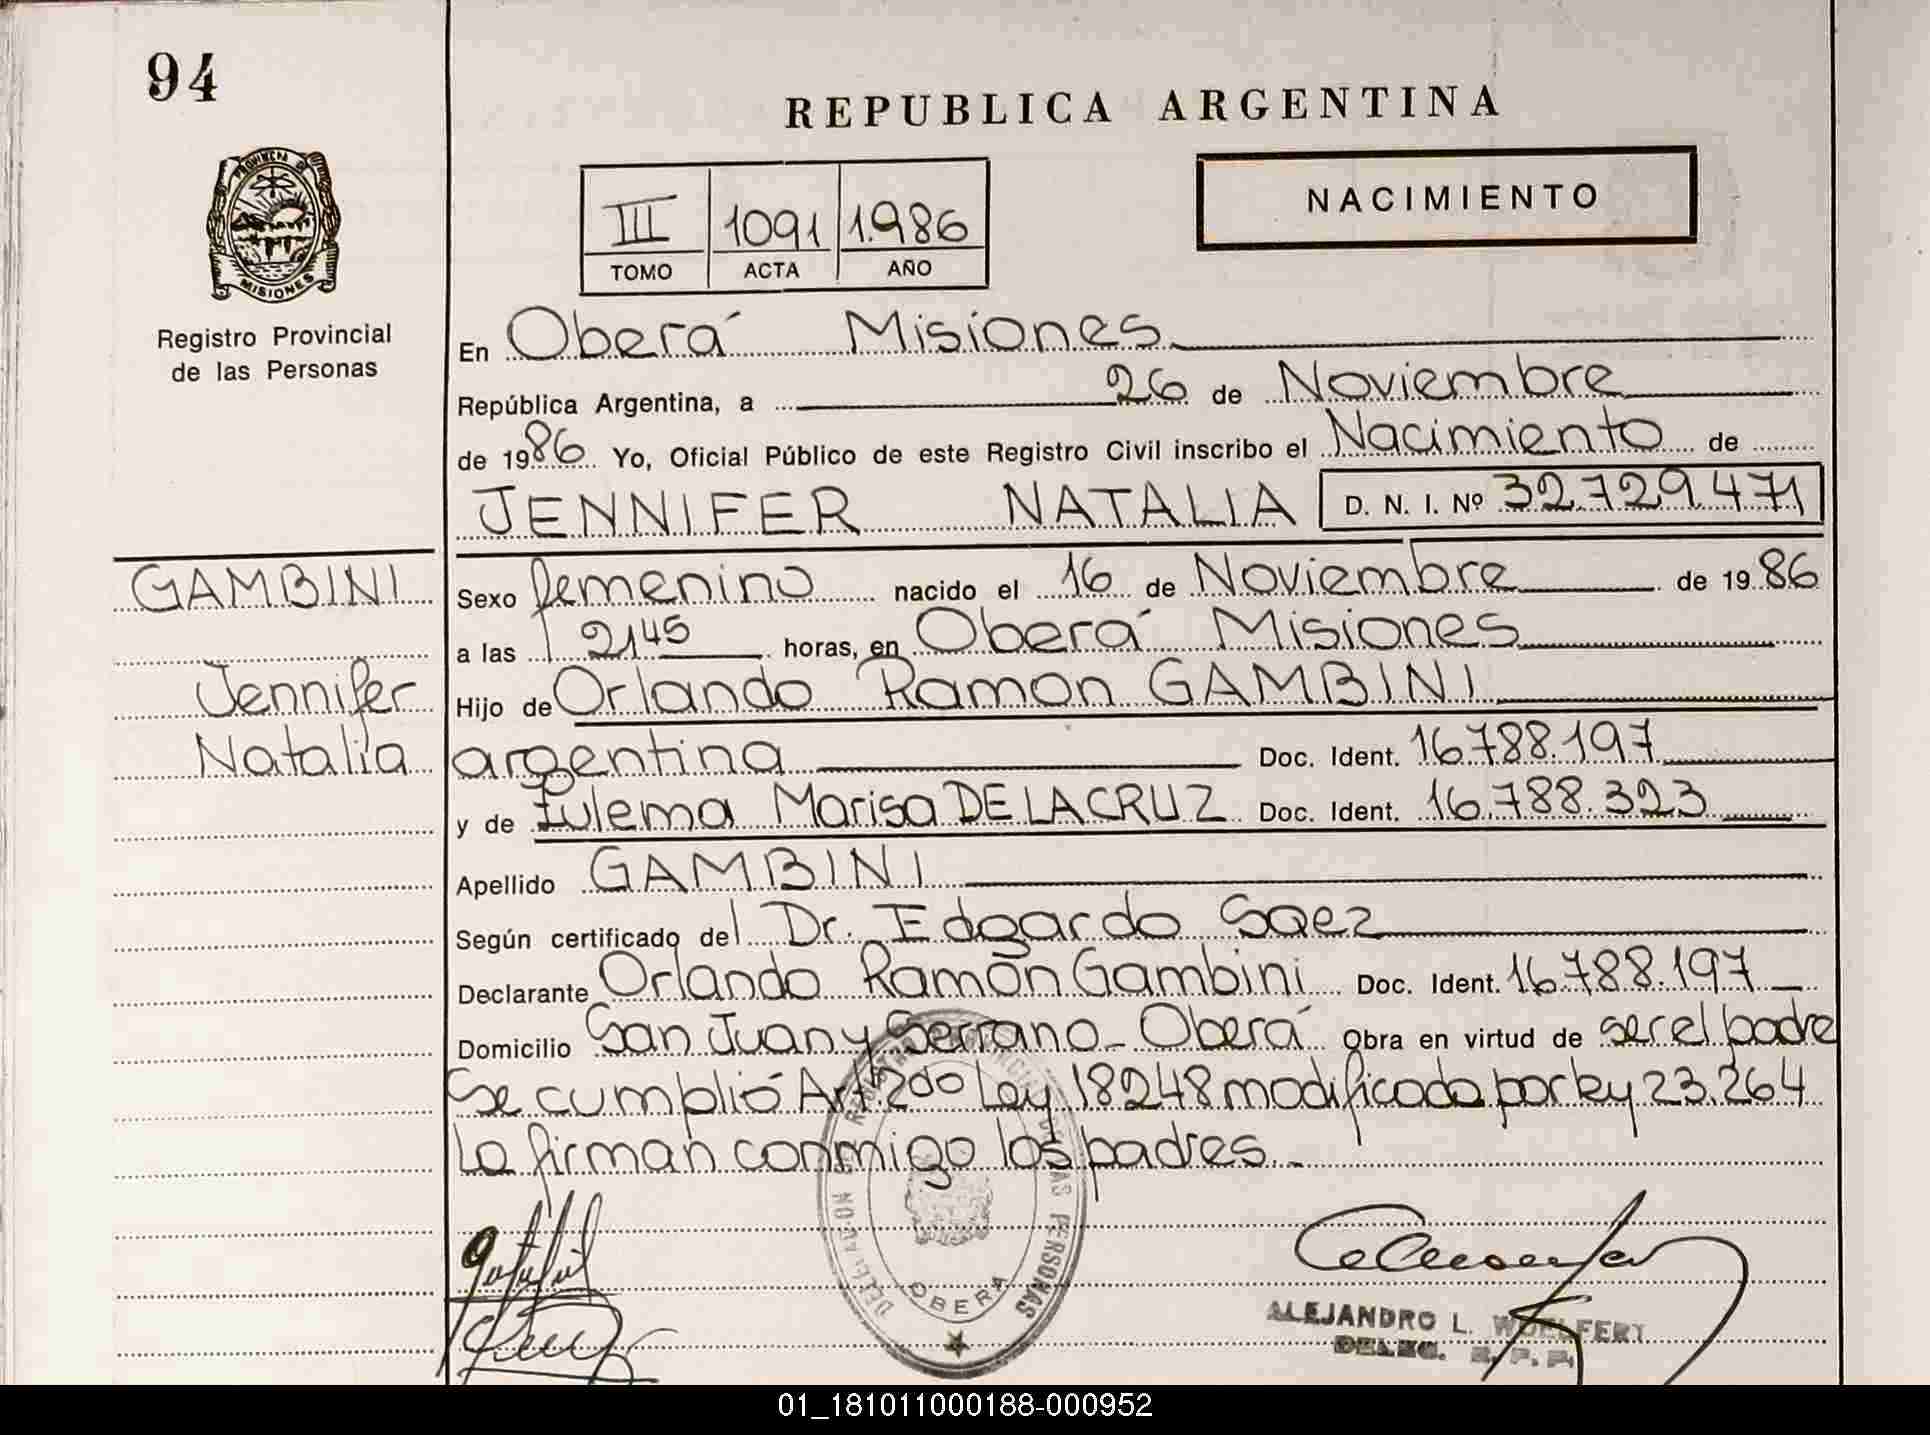 94
REPUBLICA ARGENTINA
PROVINCIA DE
MISIONES
Registro Provincial
de las Personas
III 1091 1.986
TOMO ACTA AÑO
NACIMIENTO
En Oberá Misiones
República Argentina, a 26 de Noviembre
de 1986 Yo, Oficial Público de este Registro Civil inscribo el Nacimiento de
JENNIFER NATALIA D. N. I. Nº 32.729.471
GAMBINI
Jennifer
Natalia
Sexo femenino nacido el 16 de Noviembre de 1986
a las 21 45 horas, en Oberá Misiones
Hijo de Orlando Ramon GAMBINI
argentina Doc. Ident. 16.788.197
y de Zulema Marisa DE LA CRUZ Doc. Ident. 16.788.323
Apellido GAMBINI
Según certificado del Dr. Edgardo Saez
Declarante Orlando Ramón Gambini Doc. Ident. 16.788.197
Domicilio San Juan y Serrano - Oberá Obra en virtud de ser el padre
Se cumplió Art. 2do Ley 18248 modificada por ley 23.264
La firman conmigo los padres.
DE LAS PERSONAS
OBERA
ALEJANDRO L. WOELFERT
DELEG. R. P. P.
01_181011000188-000952